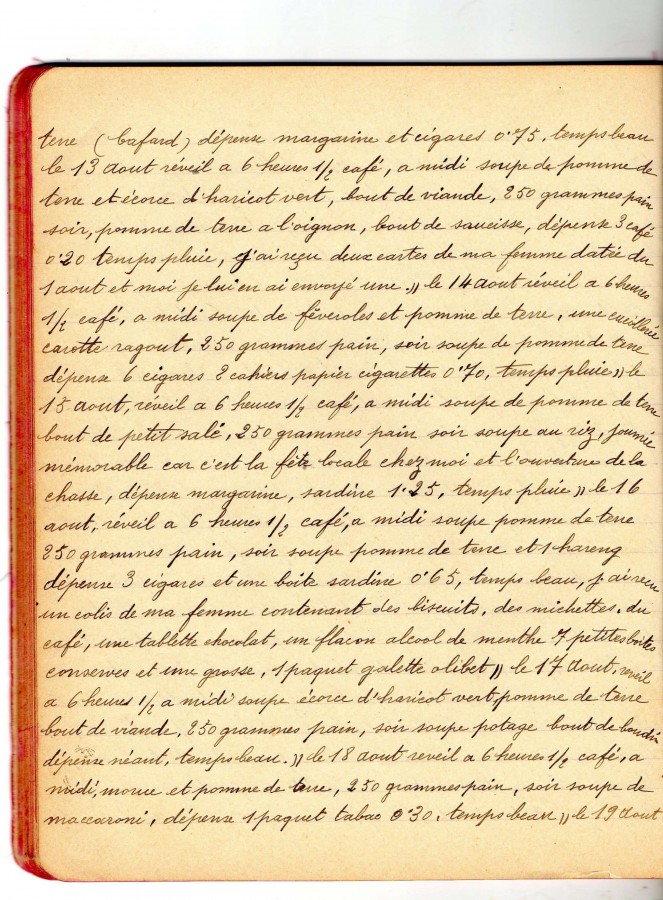 terre (cafard) dépense margarine et cigares 0'75, temps beau
le 13 aout réveil a 6 heures 1/2 café, a midi soupe de pomme de
terre et écorce d'haricot vert, bout de viande, 250 grammes pain
soir, pomme de terre a l'oignon, bout de saucisse, dépense 3 café
0'20 temps pluie, j'ai reçu deux cartes de ma femme datée du
1 aout et moi je lui en ai envoyé une.,, le 14 aout réveil a 6 heures
1/2 café, a midi soupe de féveroles et pomme de terre, une cuillerée
carotte ragout, 250 grammes pain, soir soupe de pomme de terre
dépense 6 cigares 2 cahiers papier cigarettes 0'70, temps pluie ,, le
15 aout, réveil a 6 heures 1/2 café, a midi soupe de pomme de terre
bout de petit salé, 250 grammes pain soir soupe au riz, journée
mémorable car c'est la fête locale chez moi et l'ouverture de la
chasse, dépense margarine, sardine 1'25, temps pluie ,, le 16
aout, réveil a 6 heures 1/2 café, a midi soupe pomme de terre
250 grammes pain, soir soupe pomme de terre et 1 hareng
dépense 3 cigares et une boite sardine 0'65, temps beau, j'ai reçu
un colis de ma femme contenant des biscuits, des michettes, du
café, une tablette chocolat, un flacon alcool de menthe 7 petites boites
conserves et une grosse, 1 paquet galette olibet ,, le 17 aout, reveil
a 6 heures 1/2 a midi soupe écorce d'haricot vert, pomme de terre
bout de viande, 250 grammes pain, soir soupe potage bout de boudin
dépense néant, temps beau. ,, le 18 aout reveil a 6 heures 1/2 café, a
midi, morue et pomme de terre, 250 grammes pain, soir soupe de
maccaroni, dépense 1 paquet tabac 0'30, temps beau ,, le 19 aout